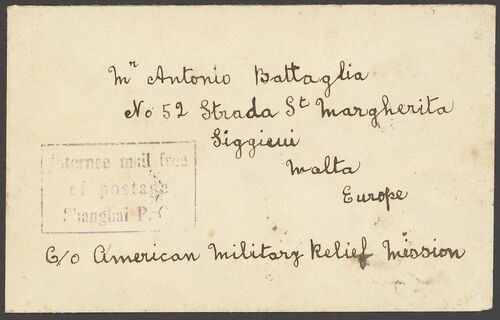 Mr Antonio Battaglia
No 52 Strada St Margherita
Siggieui
Malta
Europe
Internee mail free
of postage
Shanghai P.
C/o American Military Relief Mission